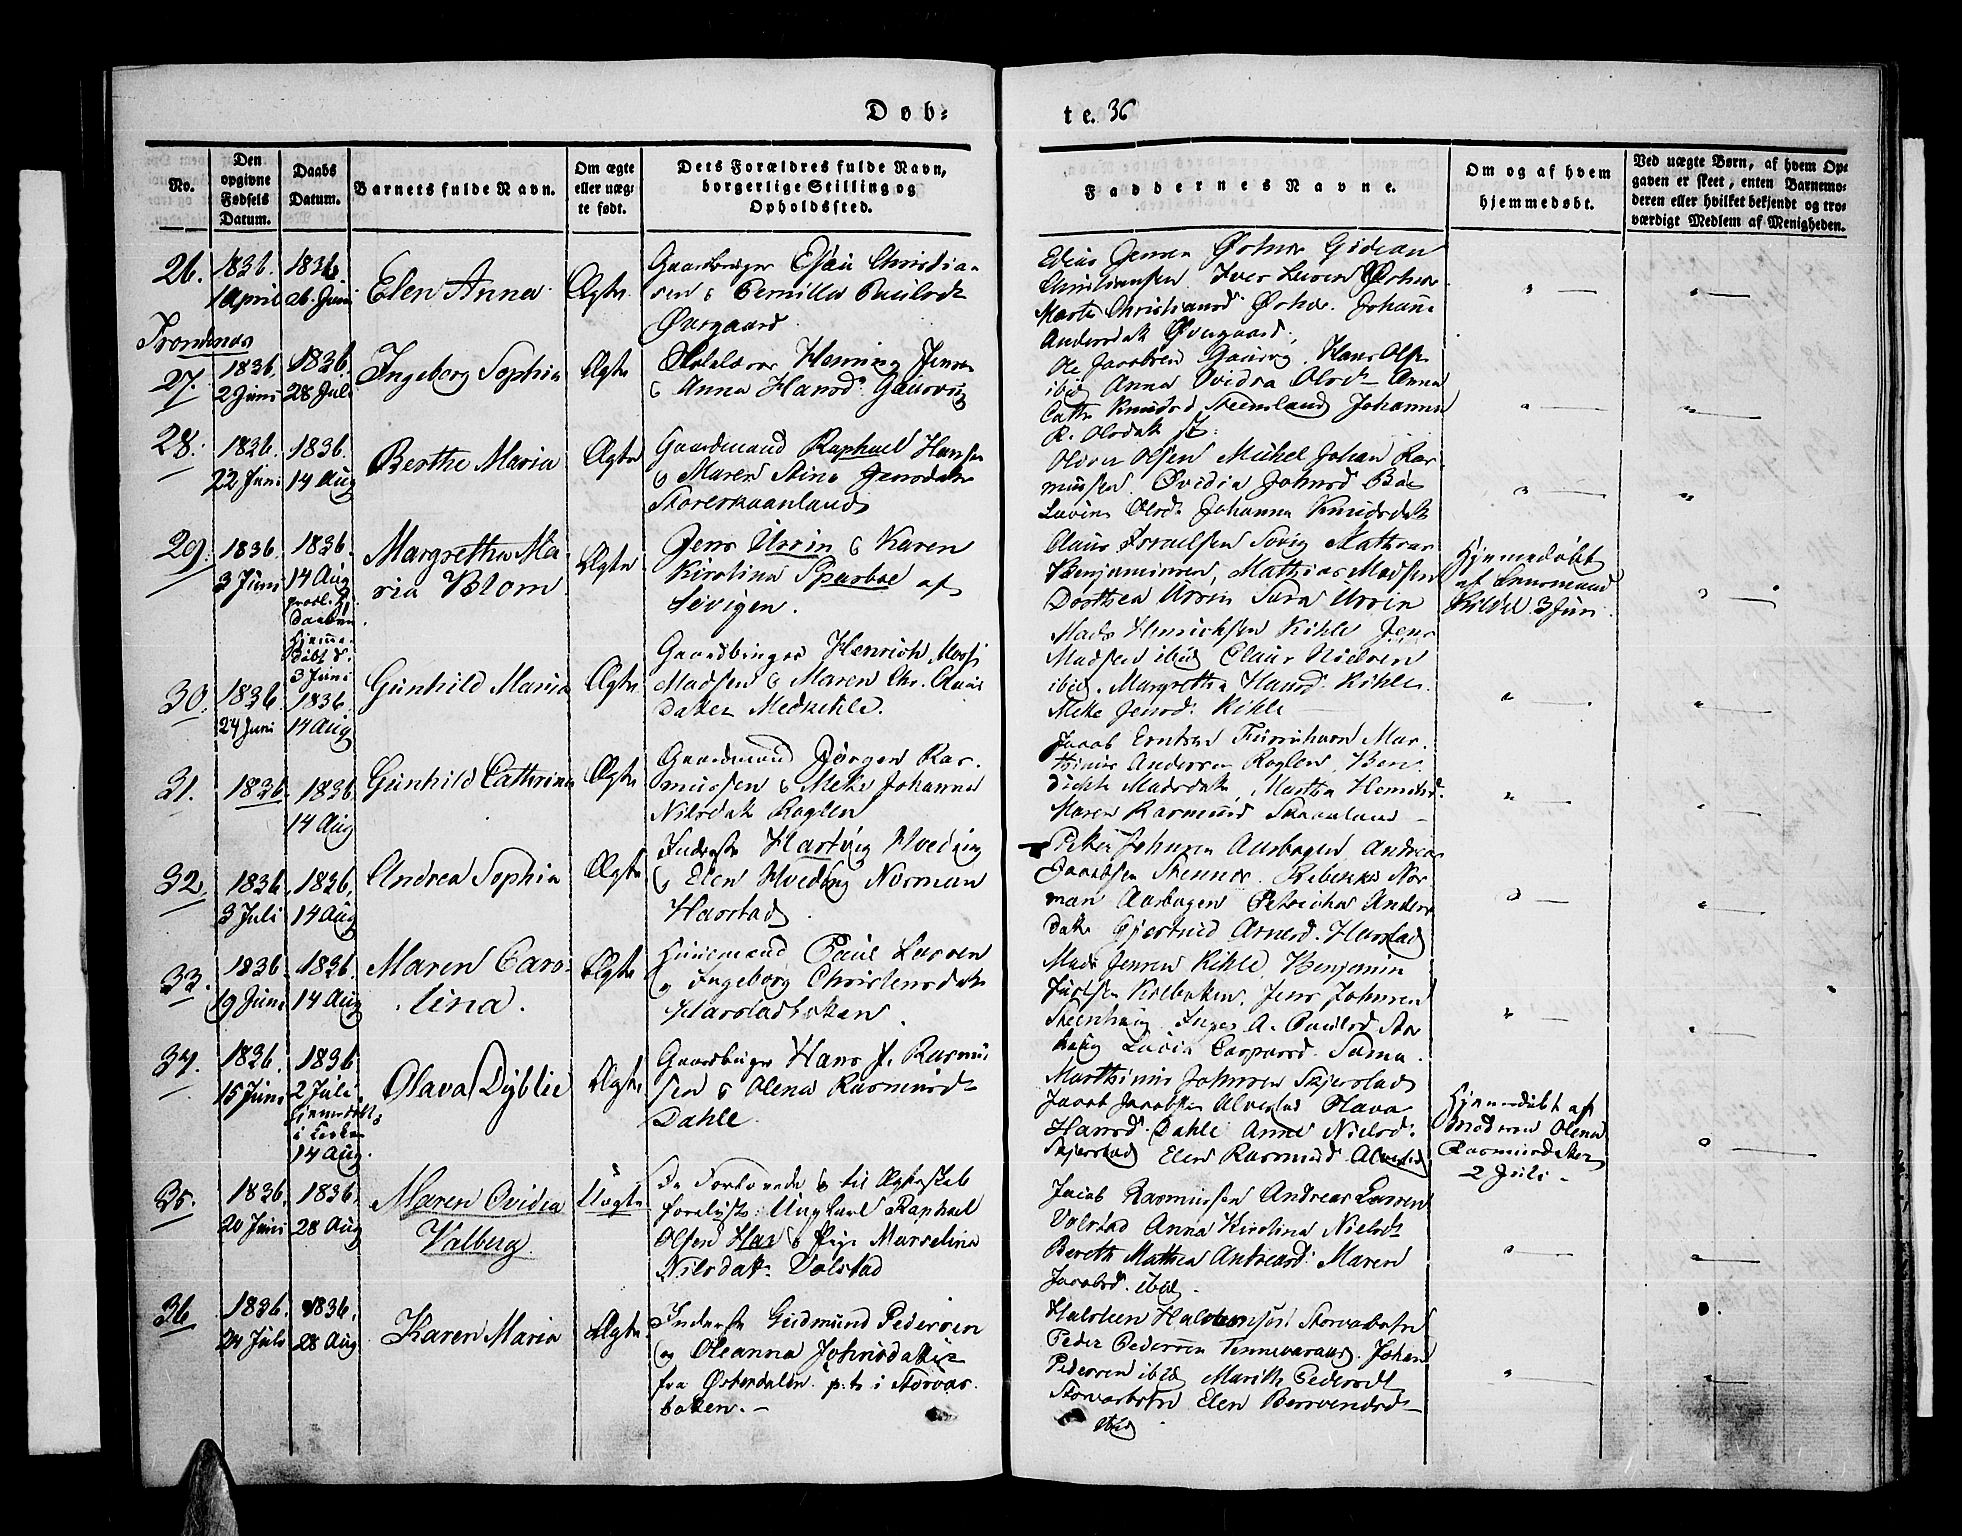 Døb-
te. 36
No.
Den
opgivne
Fødsels
Datum.
Daabs
Datum.
Barnets fulde Navn.
Om ægte
eller uæg-
te født.
Dets Forældres fulde Navn,
borgerlige Stilling og
Opholdssted.
Faddernes Navne.
Om og af hvem
hjemmedøbt.
Ved uægte Børn, af hvem Op-
gaven er skeet, enten Barnemo-
deren eller hvilket bekjendt og tro-
værdigt Medlem af Menigheden.
26.
1836.
April
1836
26 Juni
Elen Anna
Ægte
Gaardbruger Esau Christian-
sen & Pernilla Paulsd
Øvrgaard
Elias Jensen Gidean
Christiansen Iver Larsen
Marte Christiansd Johan
Andersdat Øvergaard,
Trondenæs
27.
1836.
2 Juni
1836.
28 Juli
Ingeborg Sophia
Ægte
Henning Jensen
& Anna Hansd. Gausvig
Ole Jacobsen Gausvig. Hans Ols
ibid Anna Olsd Anna
Cath Knudsd Steensland Johanna
R. Olsdat st.
28.
1836.
22 Juni
1836.
14 Aug
Berthe Maria
Ægte
Gaardmand Raphael Hansen
& Maren Stina Jensdat
Storeskaanland
Olsen Mikkel Johan Ras-
mussen. Øvidia Johnsd
Olsd Johanna Knudsdat
29.
1836.
3 Juni
1836.
14 Aug
Daaben
Hjemme-
døbt d.
3 Juni
Margretha Ma-
ria Blom
Ægte
Jens Urrin & Karen
Kirstina Sparboe af
Sevigen.
Claus Israelsen Mathias
Benjaminsen, Mathias Madsen
Dorthea Urrin Sara Urrin
Hjemmedøbt
af
3 Juni.
30.
1836
24 Juni
1836.
14 Aug
Gunhild Maria
Ægte
Gaardbruger Henrich
Madsen & Maren Chr.
datter Medkihle.
Mads Henrichsen Kihle Jens
Madsen ibid Claus Nielsen
ibid. Margretha Hansd. Kihle.
Meke Jensd. Kihle
31.
1836.
1836.
14 Aug
Gunhild Cathrina
Ægte
Gaardmand Jørgen Ras-
mussen & Meke Johanna
Nilsdat Roglen
Jacob Erntsen Mar-
thinus Andersen Roglen, Ben-
dickte Madsdat, Martha
Maren Rasmusd Skaanland
32.
1836.
3 Juli
1836.
14 Aug
Andrea Sophia
Ægte
Inderste Hartvig Hveding
& Elen Hveding Norman
Harstad
Peter Johnsen Aasbogen Andreas
Jacobsen Rebekka Nor-
man Aasbogen Petricha Anders-
dat Gjertrud Arnesd. Harstad
33.
1836.
19 Juni
1836.
14 Aug
Maren Caro-
lina.
Ægte
Huusmand Paul Larsen
& Ingeborg Christensdat
Harstadbotten
Mads Jensen Kihle, Benjamin
Kilbotten, Jens Johnsen
Steenhaug. Inger A. Paulsd
haug Lucia Caspersd. Sama.
34.
1836.
15 Juni
1836
2 Juli
hjemmedøbt
i Kirken
14 Aug.
Olava Dyblie
Ægte
Gaardbruger Hans P. Rasmus-
sen & Olena Rasmusd
Dahle.
Marthinus Johnsen Skjerstad
Jacob Jacobsen Alvestad Olava
Hansd. Dahle Anne Nielsd.
Skjerstad Elen Rasmusd Alvestad
Hjemmedøbt af
Moderen Olena
Rasmusdatter
2 Juli.
35.
1836.
20 Juni
1836.
28 Aug
Maren Ovidia
Valberg
Uægte
De Forlovede & til Ægteskab
forelyste Ungkarl Raphael
Olsen Har & Pige Marselina
Nilsdat. Volstad
Jacob Rasmussen Andreas Larsen
Volstad Anna Kirstina Nielsd
Bereth Mathea Andreasd. Maren
Jacobsd. ibid.
36
1836.
24 Juli
1836.
28 Aug
Karen Maria
Ægte
Inderste Gudmund Pedersen
og Oleanna Johnsdatter
fra Østerdalen p.t. i Storvas-
botten.
Halsteen Halstensen Storvasbotn
Peder Pedersen Tennevasaas. Johan
Pedersen ibid Marith Pedersd
Storvasbotn Elen
ibid